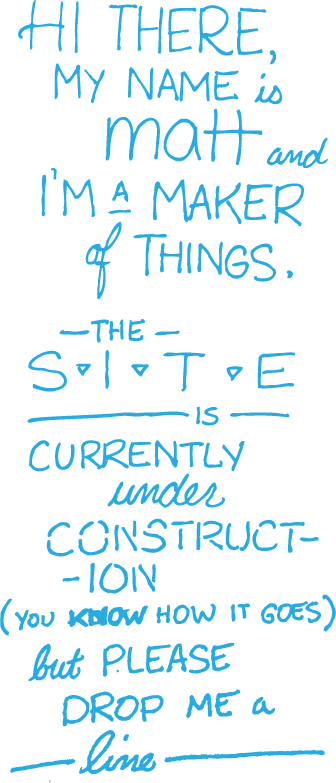 HI THERE,
MY NAME is
maTT and
I'M A MAKER
of THINGS.
—THE—
S▿I▿T▿E
IS
CURRENTLY
under
CONSTRUCT-
-ION
(YOU KNOW HOW IT GOES)
but PLEASE
DROP ME a
line